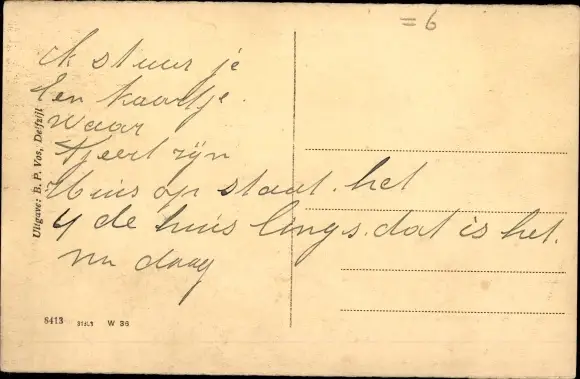 = 6
ik stuur je
Een kaartje.
waar
Tjeert zijn
Huis op staat. het
4 de huis lings. dat is het.
nu daag
Uitgave: B. P. Vos, Delfzijl
8413 W 36